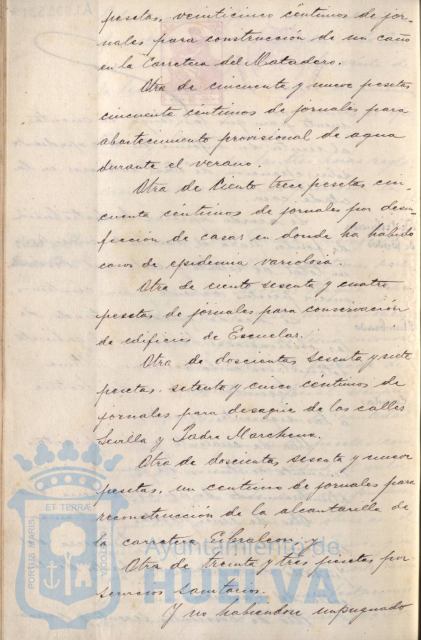 pesetas, veinticinco céntimos de jor-
nales para construcción de un caño
en la Carretera del Matadero.
Otra de cincuenta y nueve pesetas
cincuenta céntimos de jornales para
abastecimiento provisional de agua
durante el verano.
Otra de Ciento trece pesetas cin-
cuenta céntimos de jornales por desin-
fección de casas en donde ha habido
casos de epidemia variolosa.
Otra de ciento sesenta y cuatro
pesetas de jornales para conservación
de edificios de Escuelas.
Otra de doscientas sesenta y siete
pesetas setenta y cinco céntimos de
jornales para desagüe de las calles
Sevilla y Padre Marchena.
Otra de doscientas sesenta y nueve
pesetas, un céntimo de jornales para
reconstrucción de la alcantarilla de
la carretera Gibraleon, y
Otra de treinta y tres pesetas por
servicios sanitarios.
Y no habiendose impugnado
PORTUS MARIS
ET TERRÆ
CUSTODIA
Ayuntamiento de
HUELVA